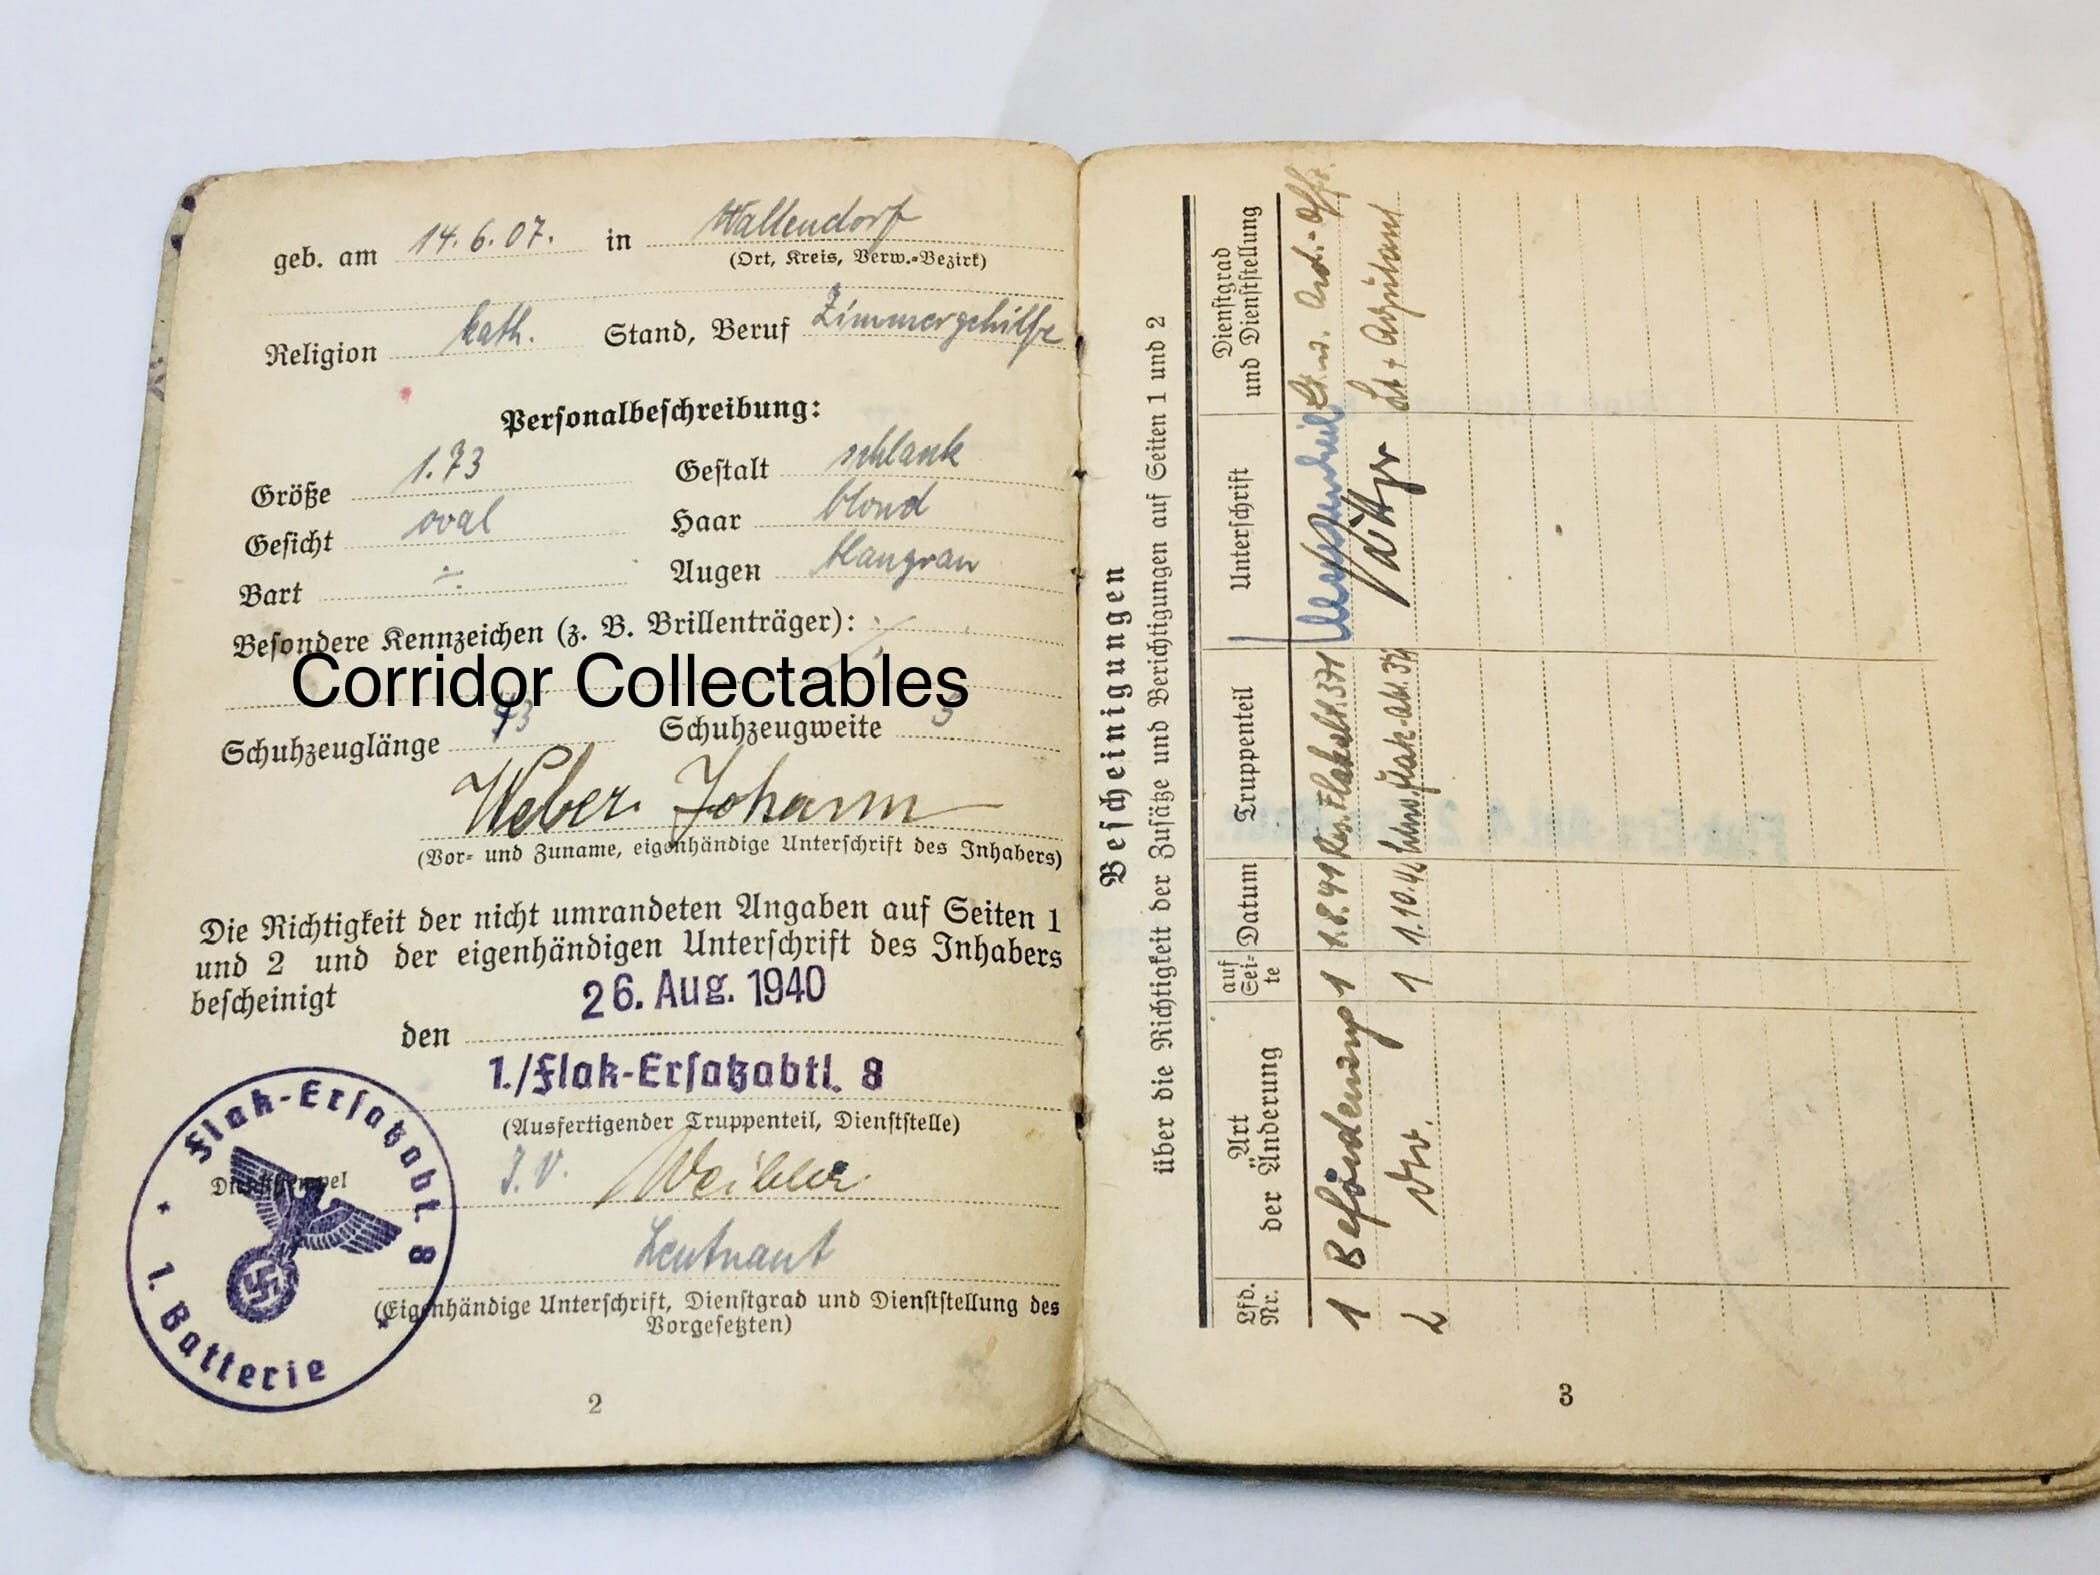 geb. am 14.6.07. in Wallendorf
(Ort, Kreis, Verw.=Bezirk)
Religion kath. Stand, Beruf Zimmergehilfe
Personalbeschreibung:
Größe 1.73 Gestalt schlank
Gesicht oval Haar blond
Bart ÷ Augen blaugrau
Besondere Kennzeichen (z. B. Brillenträger):
Corridor Collectables
Schuhzeuglänge 43 Schuhzeugweite 5
Weber Johann
(Vor= und Zuname, eigenhändige Unterschrift des Inhabers)
Die Richtigkeit der nicht umrandeten Angaben auf Seiten 1
und 2 und der eigenhändigen Unterschrift des Inhabers
bescheinigt
den 26. Aug. 1940
1./Flak-Ersatzabtl. 8
(Ausfertigender Truppenteil, Dienststelle)
J.V.
Leutnant
(Eigenhändige Unterschrift, Dienstgrad und Dienststellung des
Vorgesetzten)
Dienststempel
Flak-Ersatzabt. 8
1. Batterie
2
Bescheinigungen
über die Richtigkeit der Zusätze und Berichtigungen auf Seiten 1 und 2
Lfd. Nr. Art der Änderung auf Sei=te Datum Truppenteil Unterschrift Dienstgrad und Dienststellung
1 Beförderung 1 1.8.41 Res. Flakabt. 371 Lt. u.
2 1 1.10.42 Flak-Abt. 371 Lt. + Adjutant
3